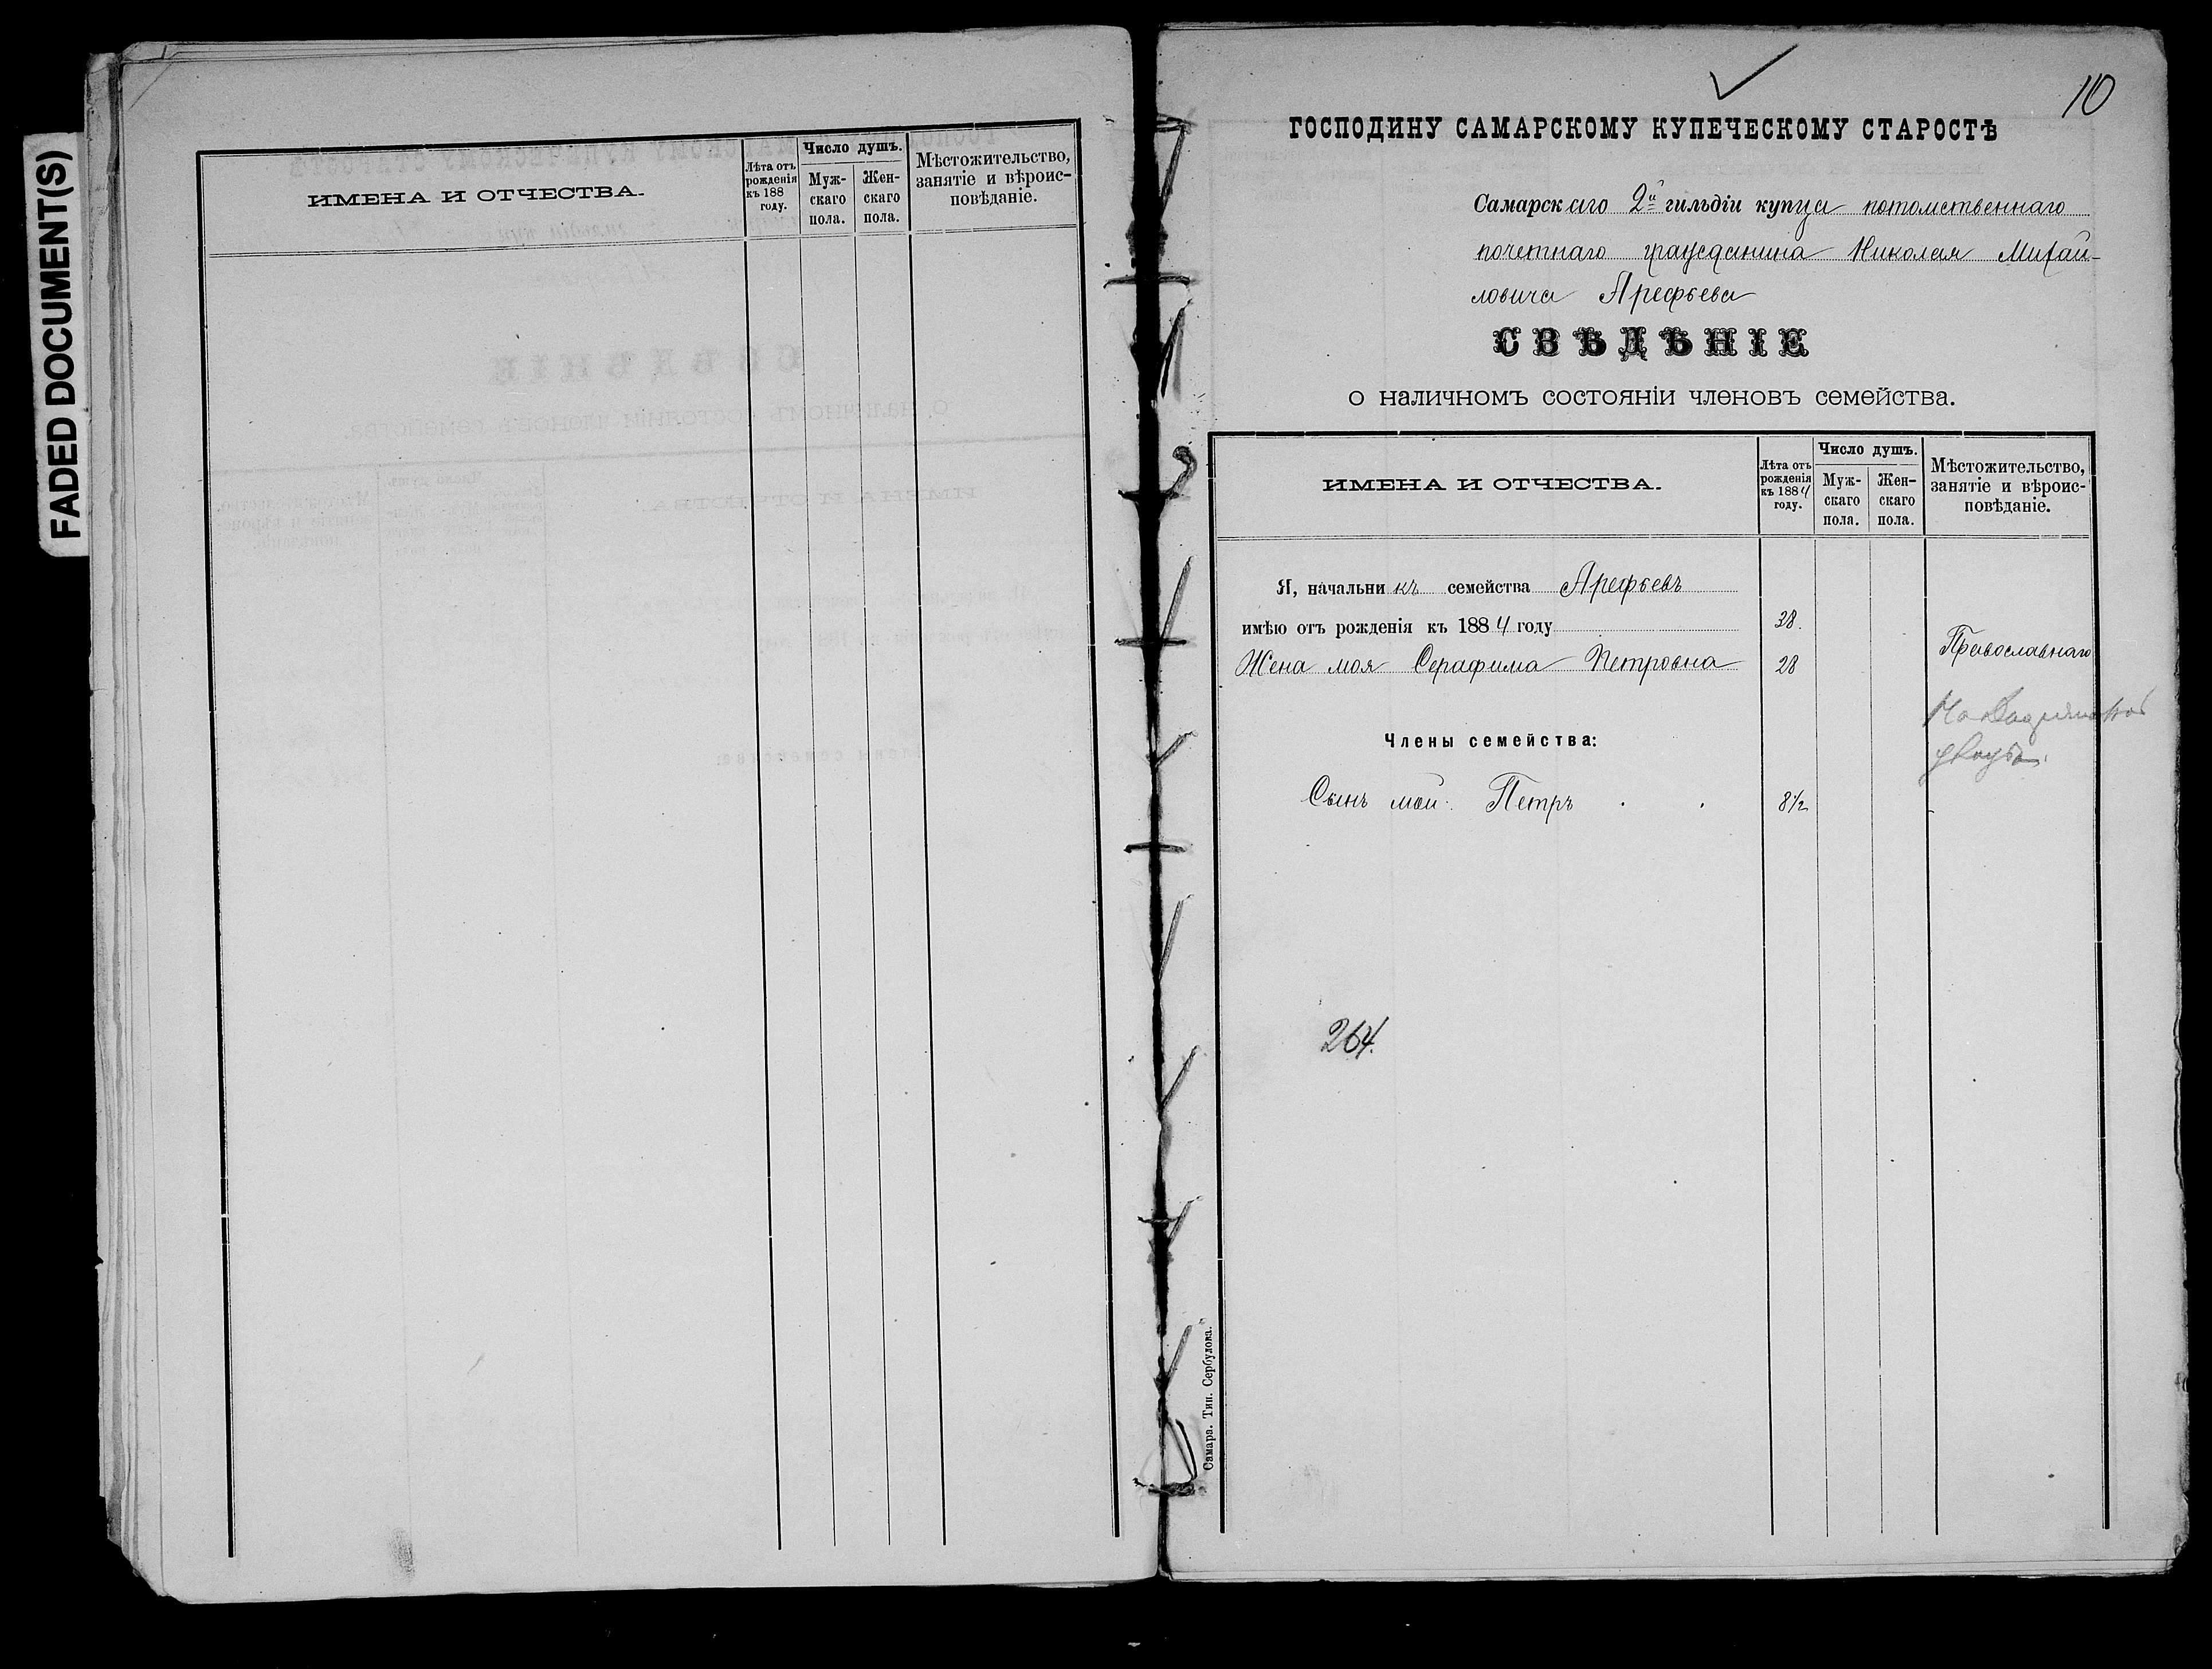 FADED DOCUMENT(S)
ИМЕНА И ОТЧЕСТВА.
Лѣта отъ
рожденія
къ 188
году.
Число душъ.
Муж-
скаго
пола.
Жен-
скаго
пола.
Мѣстожительство,
занятіе и вѣроис-
повѣданіе.
10
ГОСПОДИНУ САМАРСКОМУ КУПЕЧЕСКОМУ СТАРОСТѢ
Самарскаго 2й гильдіи купца потомственнаго
почетнаго гражданина Николая Михай-
ловича Арефьева
СВѢДѢНІЕ
о наличномъ состояніи членовъ семейства.
ИМЕНА И ОТЧЕСТВА.
Лѣта отъ
рожденія
къ 1884
году.
Число душъ.
Муж-
скаго
пола.
Жен-
скаго
пола.
Мѣстожительство,
занятіе и вѣроис-
повѣданіе.
Я, начальникъ семейства Арефьевъ
имѣю отъ рожденія къ 1884 году 28.
Жена моя Серафима Петровна 28
Православнаго
Члены семейства:
Сынъ мой Петръ 8 1/2
264.
Самара. Тип. Сербулова.